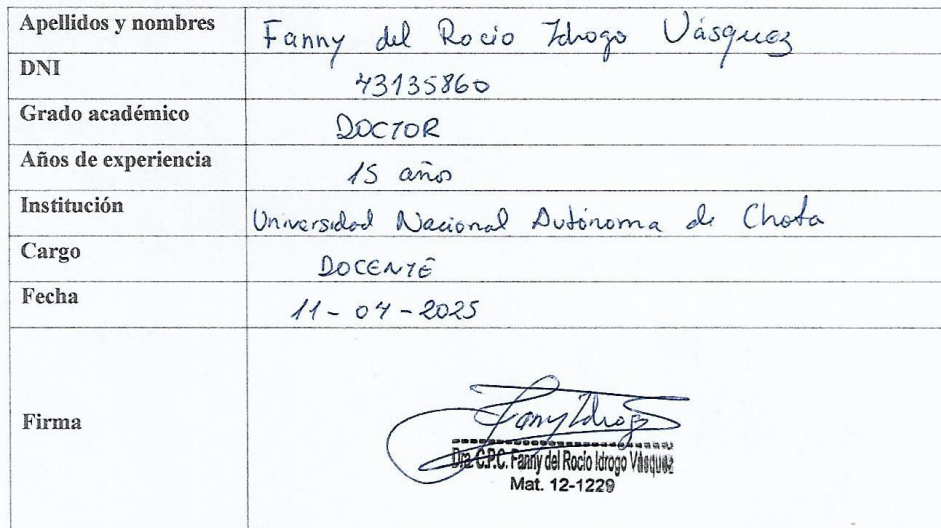 Apellidos y nombres Fanny del Rocio Idrogo Vásquez
DNI 43135860
Grado académico DOCTOR
Años de experiencia 15 años
Institución Universidad Nacional Autónoma de Chota
Cargo DOCENTE
Fecha 11-04-2025
Firma
Fanny Idrogo
Dra. C.P.C. Fanny del Rocío Idrogo Vásquez
Mat. 12-1229